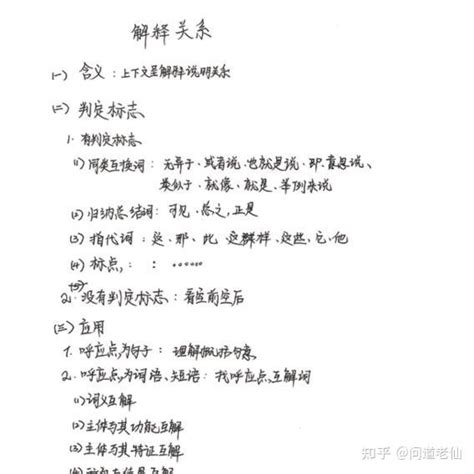 解释关系
(一) 含义：上下文呈解释说明关系
(二) 判定标志
1. 有判定标志
(1) 同类互换词：无异于、或者说、也就是说、即、意思说、
类似于、就像、就是、举例来说
(2) 归纳总结词：可见、总之、正是
(3) 指代词：这、那、此、这样、这些、它、他
(4) 标点：： ……
2. 没有判定标志：看空前空后
(三) 应用
1. 呼应点为句子：理解概括句意
2. 呼应点为词语、短语：找呼应点，互解词
(1) 词义互解
(2) 主体与其功能互解
(3) 主体与其特征互解
知乎 @问道老仙